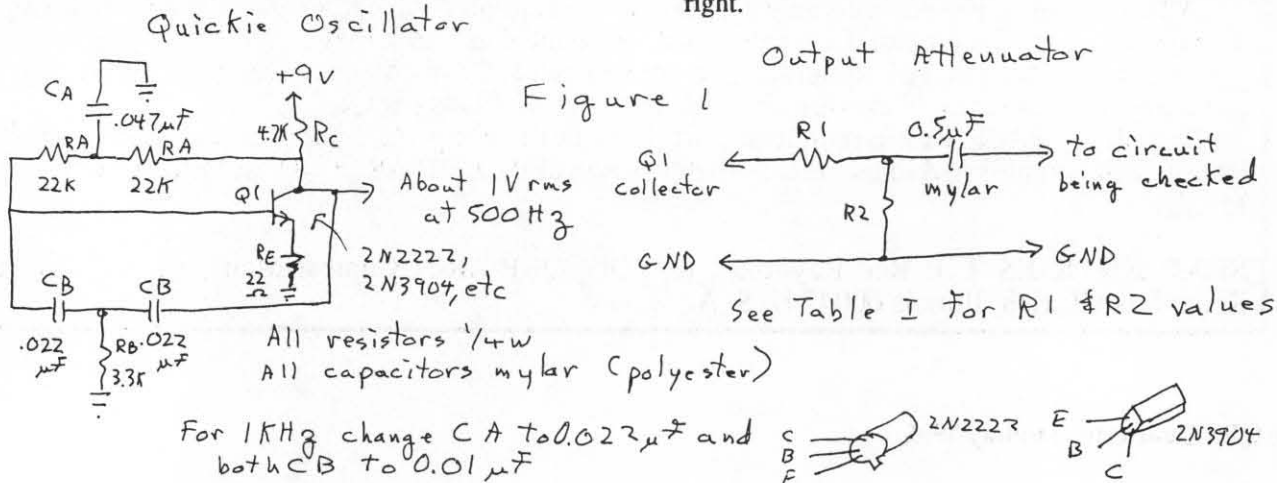 right.
Quickie Oscillator
CA
.047µF
RA
RA
22K
22K
+9V
4.7K Rc
Q1
About 1V rms
at 500 Hz
RE
22
Ω
2N2222,
2N3904, etc
CB
CB
.022
µF
RB
3.3K
.022
µF
All resistors 1/4w
All capacitors mylar (polyester)
For 1KHz change CA to 0.022µF and
both CB to 0.01µF
Figure 1
Output Attenuator
R1
0.5µF
mylar
Q1
collector
to circuit
being checked
R2
GND
GND
See Table I for R1 & R2 values
C
B
E
2N2222
E
B
C
2N3904